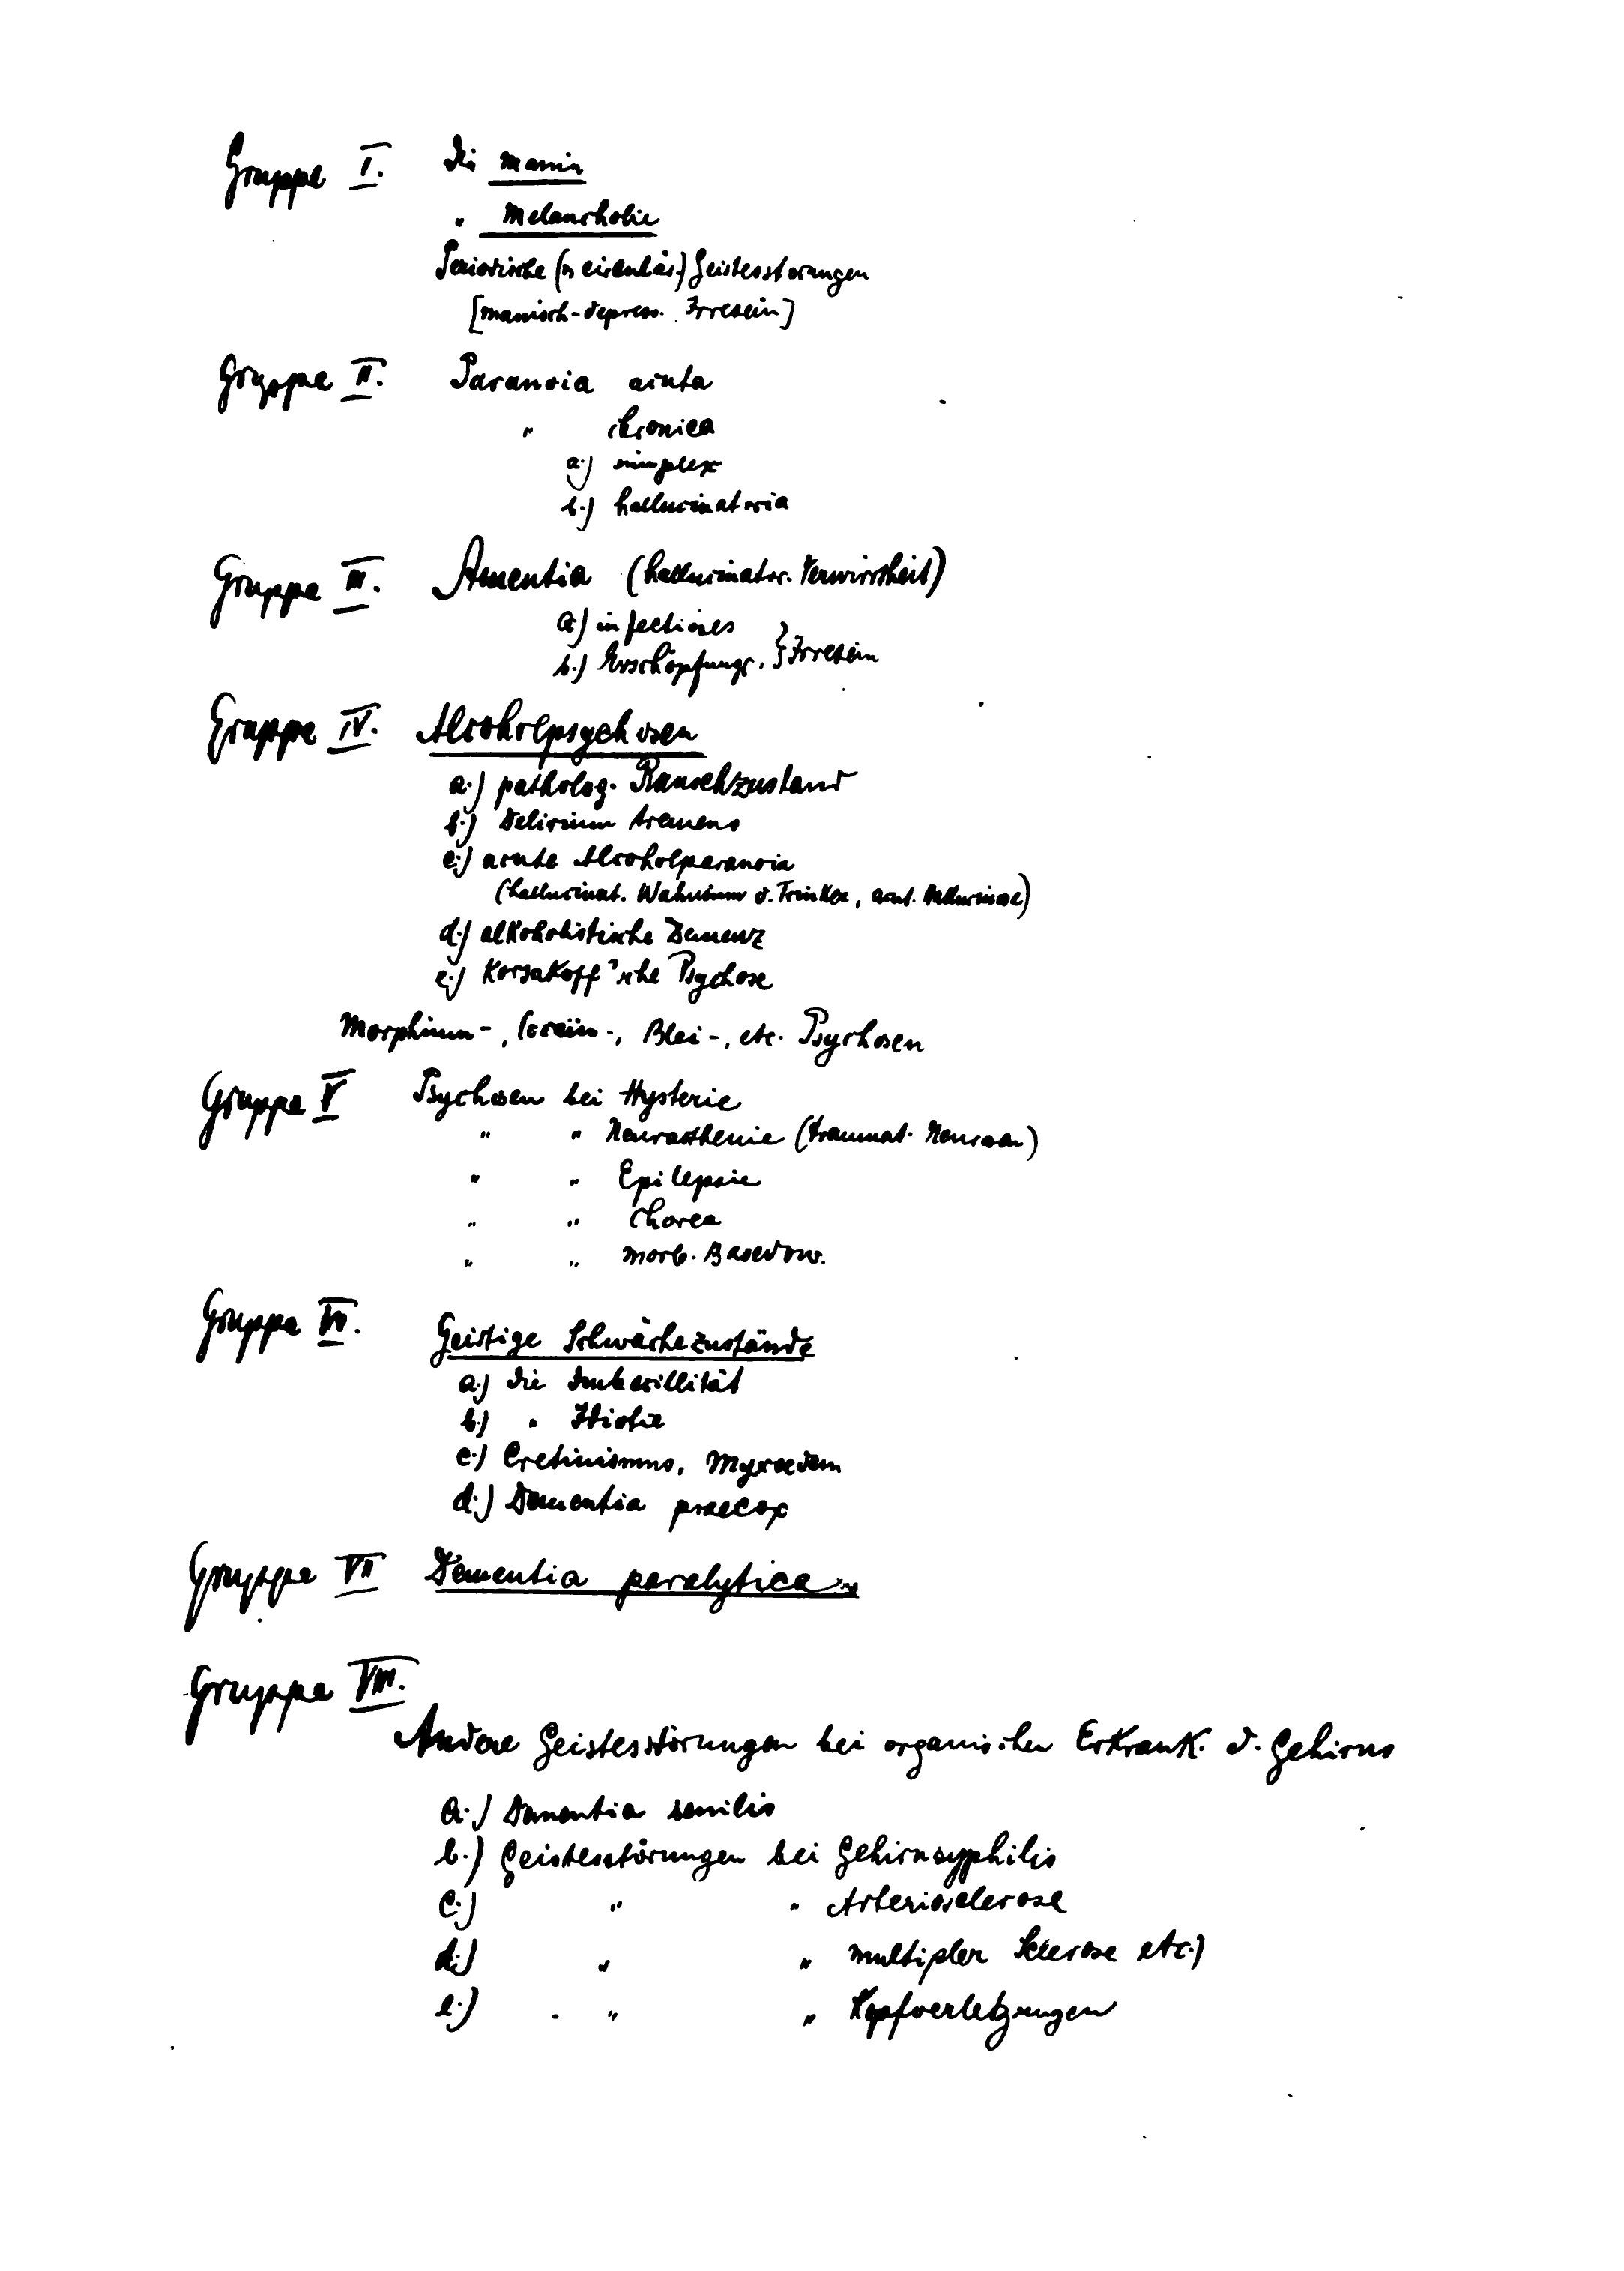 Gruppe I. Die Manie
" Melancholie
Periodische (u circulär.) Geistesstörungen
[manisch-depress. Irresein]
Gruppe II. Paranoia acuta
" chronica
a.) simplex
b.) hallucinatoria
Gruppe III. Amentia (hallucinator. Verwirrtheit)
a.) infectiöses
b.) Erschöpfungs. } Irresein
Gruppe IV. Alcoholpsychosen
a.) patholog. Rauschzustand
b.) Delirium tremens
c.) acute Alcoholparanoia
(hallucinat. Wahnsinn d. Trinker, acut. Hallucinose)
d.) alkoholistische Demenz
e.) Korsakoff'sche Psychose
Morphium-, Cocaïn-, Blei-, etc. Psychosen
Gruppe V Psychosen bei Hysterie
" " Neurasthenie (traumat. Neurosen)
" " Epilepsie
" " Chorea
" " Morb. Basedow.
Gruppe VI. Geistige Schwächezustände
a.) Die Imbecillität
b.) " Idiotie
c.) Cretinismus, Myxoedem
d.) Dementia praecox
Gruppe VII Dementia paralytica
Gruppe VIII.
Andere Geistesstörungen bei organischen Erkrank. d. Gehirns
a.) Dementia senilis
b.) Geistesstörungen bei Gehirnsyphilis
c.) " " Arteriosclerose
d.) " " multipler Sclerose etc.)
e.) " " Kopfverletzungen